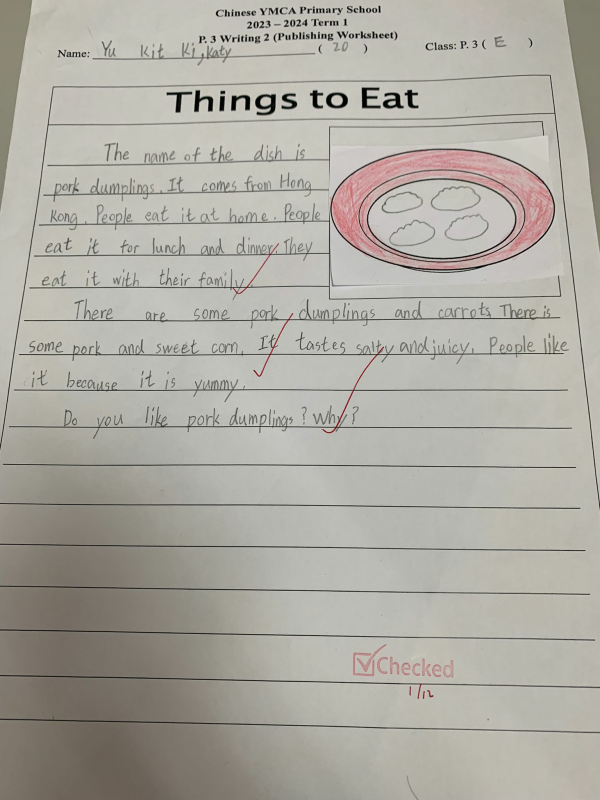 Chinese YMCA Primary School
2023 – 2024 Term 1
P. 3 Writing 2 (Publishing Worksheet)
Name: Yu Kit Ki, Katy ( 20 ) Class: P. 3 ( E )
Things to Eat
The name of the dish is
pork dumplings. It comes from Hong
Kong. People eat it at home. People
eat it for lunch and dinner. They
eat it with their family.
There are some pork dumplings and carrots. There is
some pork and sweet corn. It tastes salty and juicy. People like
it because it is yummy.
Do you like pork dumplings? Why?
Checked
1/12